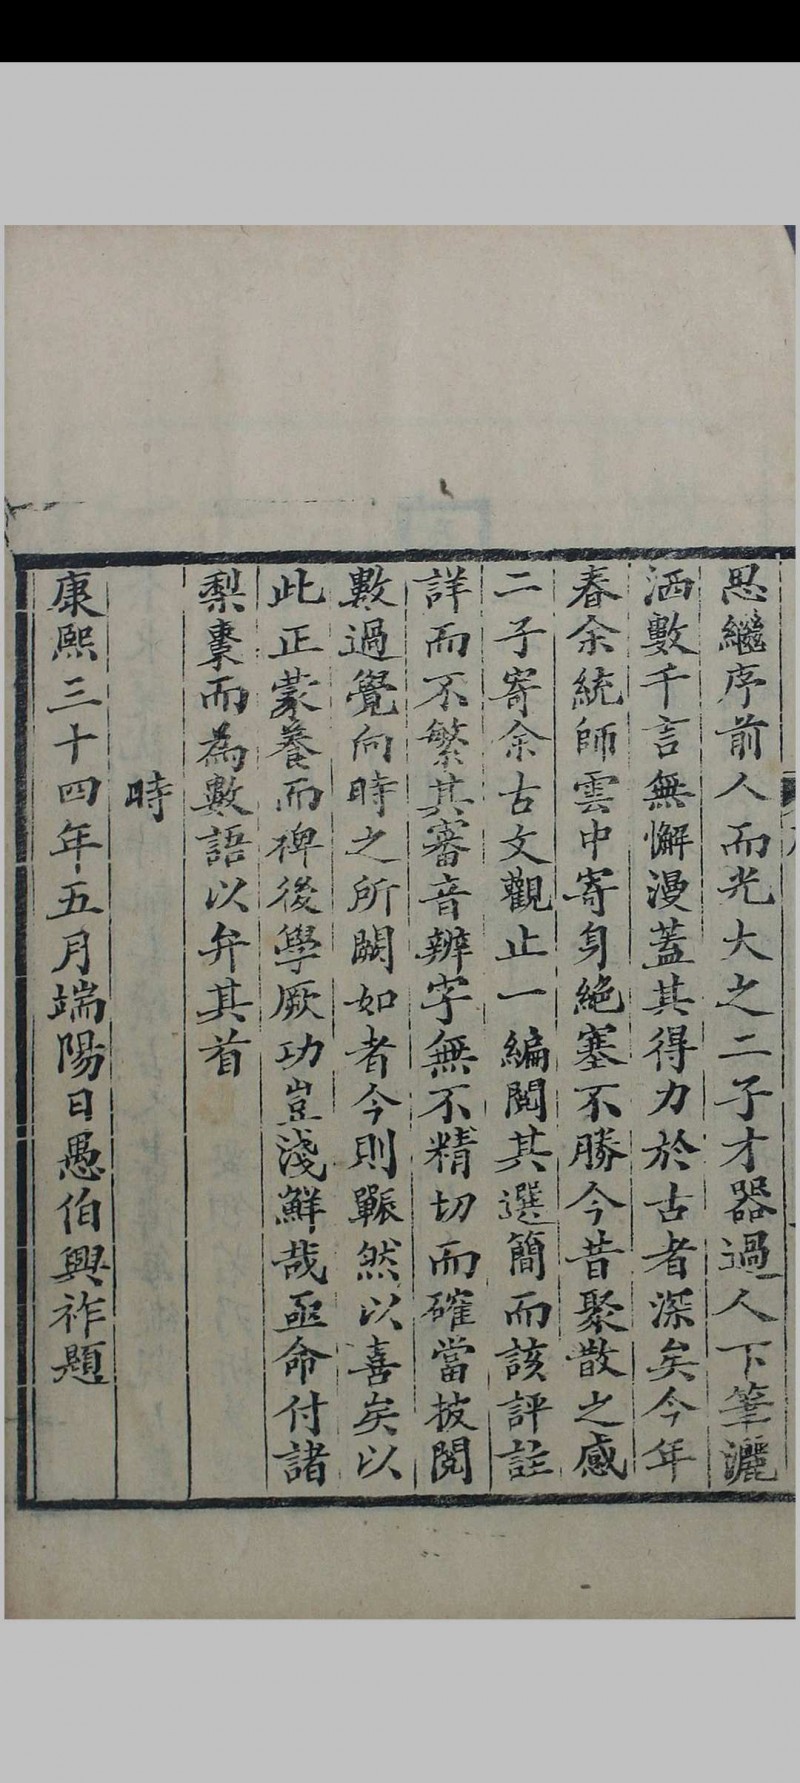 思繼序前人而光大之二子才器過人下筆灑
洒數千言無懈漫蓋其得力於古者深矣今年
春余統師雲中寄身絕塞不勝今昔聚散之感
二子寄余古文觀止一編閱其選簡而該評註
詳而不繁其審音辨字無不精切而確當披閱
數過覺向時之所闕如者今則囅然以喜矣以
此正蒙養而裨後學厥功豈淺鮮哉亟命付諸
梨棗而為數語以弁其首
時
康熙三十四年五月端陽日愚伯興祚題